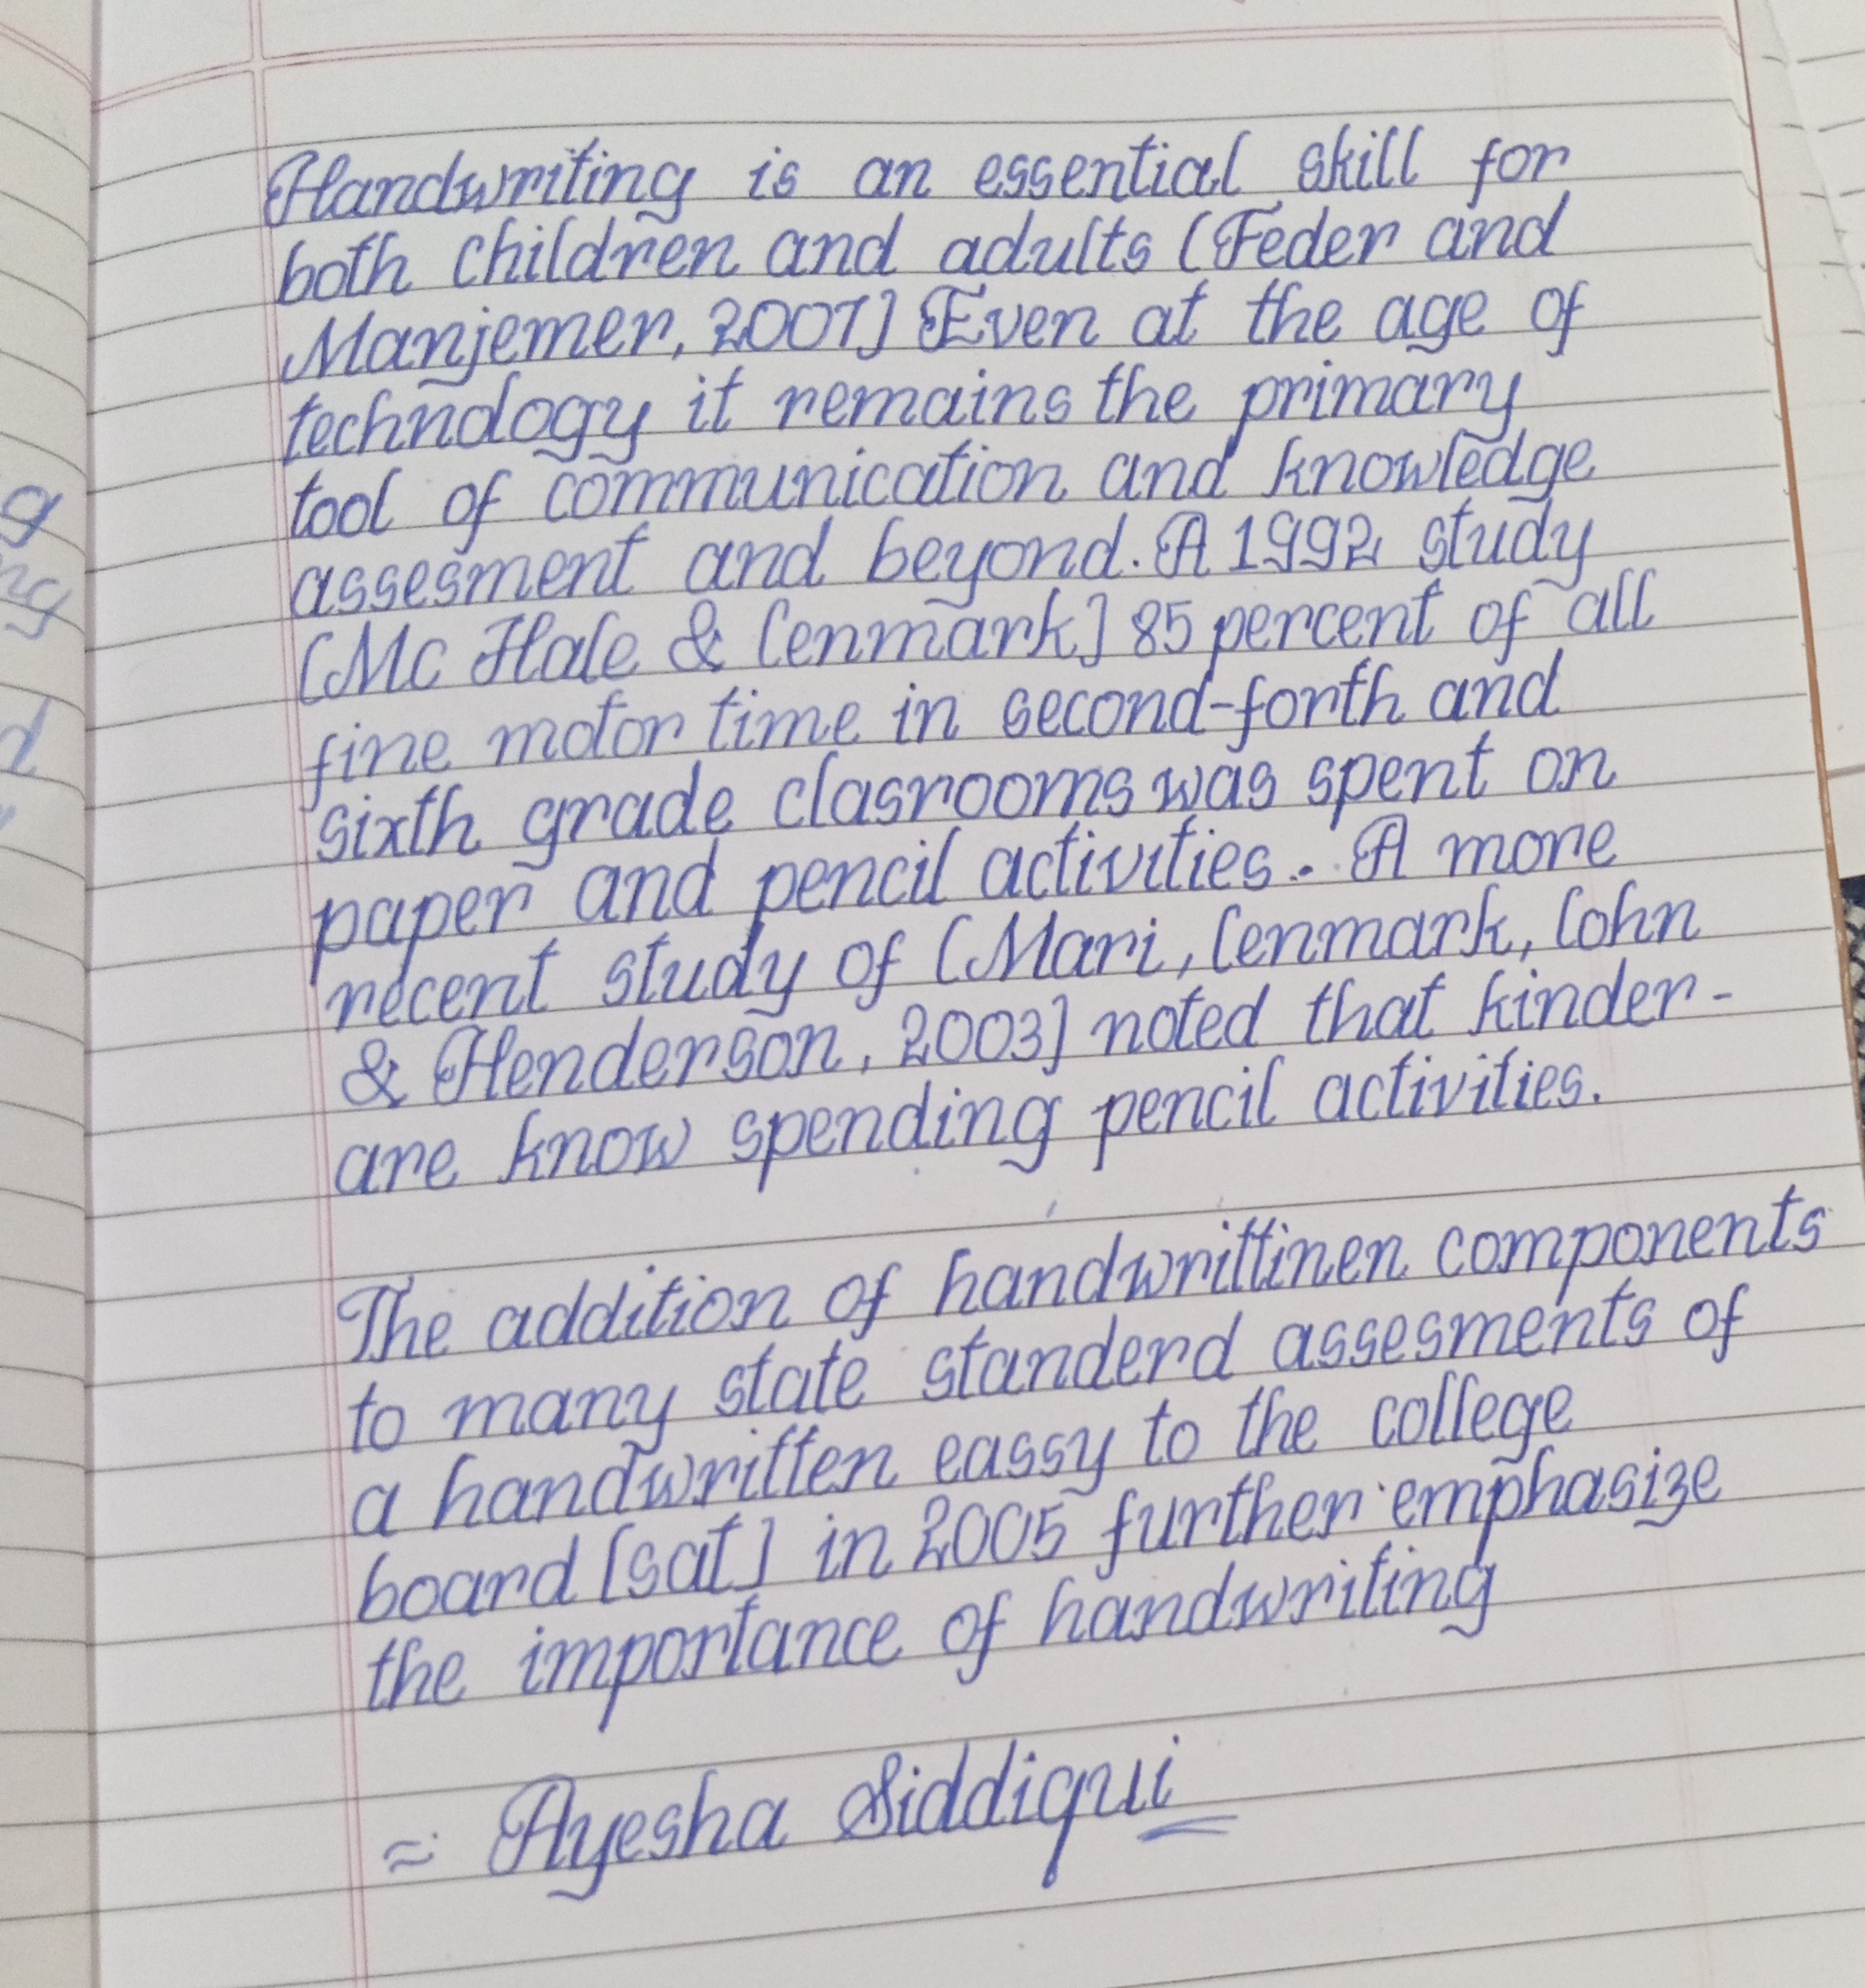 Handwriting is an essential skill for
both children and adults (Feder and
Manjemer, 2007] Even at the age of
technology it remains the primary
tool of communication and knowledge
assesment and beyond. A 1992 study
[Mc Hale & Cenmark] 85 percent of all
fine motor time in second-forth and
sixth grade clasrooms was spent on
paper and pencil activities. A more
recent study of (Mari, Cenmark, Cohn
& Henderson, 2003] noted that kinder-
are know spending pencil activities.
The addition of handwrittinen components
to many state standerd assesments of
a handwritten eassy to the college
board [sat] in 2005 further emphasize
the importance of handwriting
≈ Ayesha Siddiqui